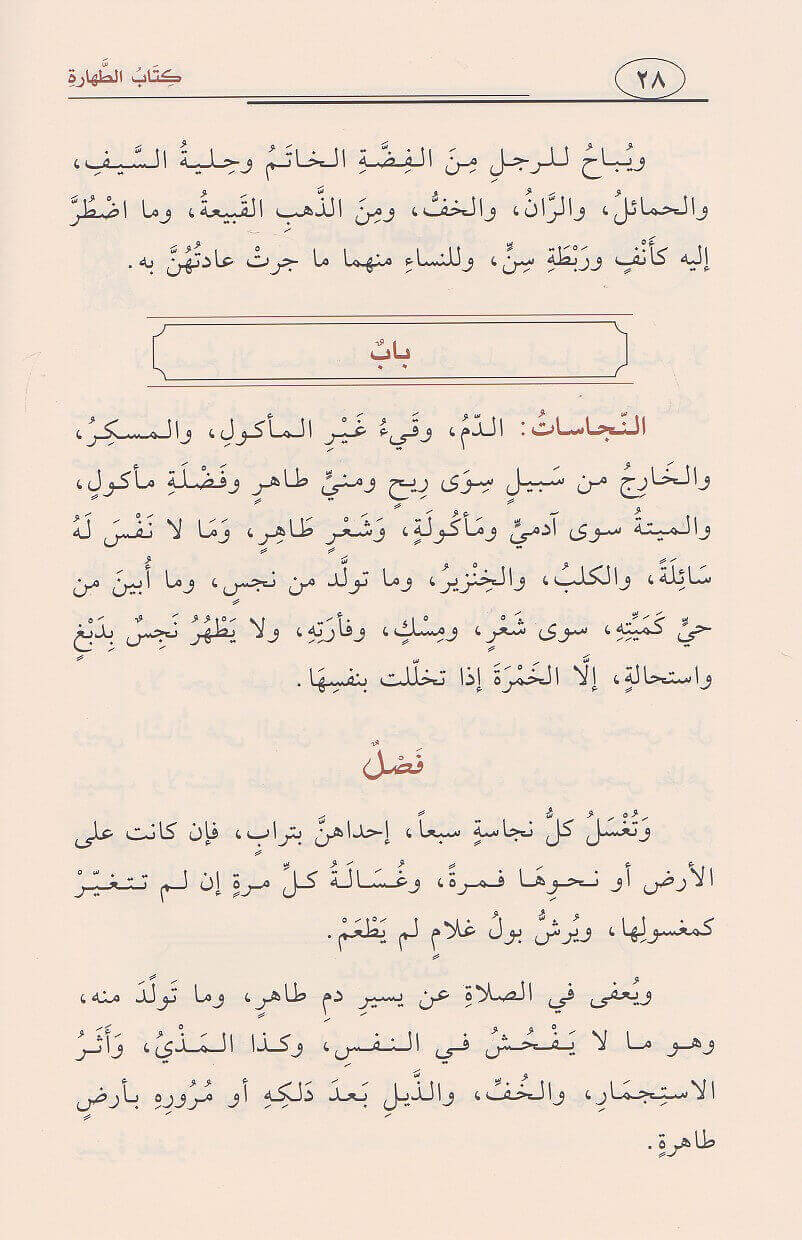 ٢٨ كِتَابُ الطَّهارةِ
ويُباحُ للرجلِ مِنَ الفِضَّةِ الخاتَمُ وحِليةُ السَّيفِ،
والحمائلُ، والرَّانُ، والخفُّ، ومِنَ الذَّهبِ القَبيعةُ، وما اضْطُرَّ
إليه كأَنْفٍ ورَبْطَةِ سِنٍّ، وللنساءِ منهما ما جرتْ عادتُهُنَّ به.
بابٌ
النَّجاساتُ: الدَّمُ، وقَيءُ غَيْرِ المأكولِ، والمسكِرُ،
والخَارِجُ من سَبيلٍ سِوَى رِيحٍ ومنيٍّ طاهرٍ وفَضْلَةِ مأكولٍ،
والميتةُ سوى آدميٍّ ومَأكُولَةٍ، وَشَعْرٍ طَاهِرٍ، وَمَا لا نَفْسَ لَهُ
سَائِلَةً، والكلبُ، والخِنْزيرُ، وما تولَّد من نجسٍ، وما أُبينَ من
حيٍّ كَمَيِّتِهِ، سوى شَعْرٍ، ومِسْكٍ، وفأرَتِهِ، ولا يَطْهُرُ نَجِسٌ بِدَبْغٍ
واستحالةٍ، إلَّا الخَمْرَةَ إذا تخلَّلت بنفسِهَا.
فَصْلٌ
وَتُغْسَلُ كلُّ نجاسةٍ سبعاً، إحداهنَّ بترابٍ، فإن كانت على
الأرض أو نحوِهَا فمرةً، وغُسَالَةُ كلِّ مرةٍ إن لم تتغيّرْ
كمغسولِها، ويُرشُّ بولُ غلامٍ لم يَطْعَمْ.
ويُعفى في الصلاةِ عن يسيرِ دمٍ طاهرٍ، وما تَولَّدَ منه،
وهو ما لا يَفْحُشُ في النفسِ، وكذا المَذْيُ، وَأَثَرُ
الاستِجمَارِ، والخُفِّ، والذَّيلِ بَعدَ دَلكِهِ أو مُرُورِهِ بأرضٍ
طاهرةٍ.